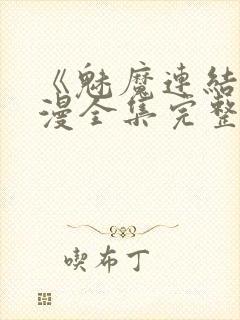 《魅魔連結
漫全集完整
喫布丁